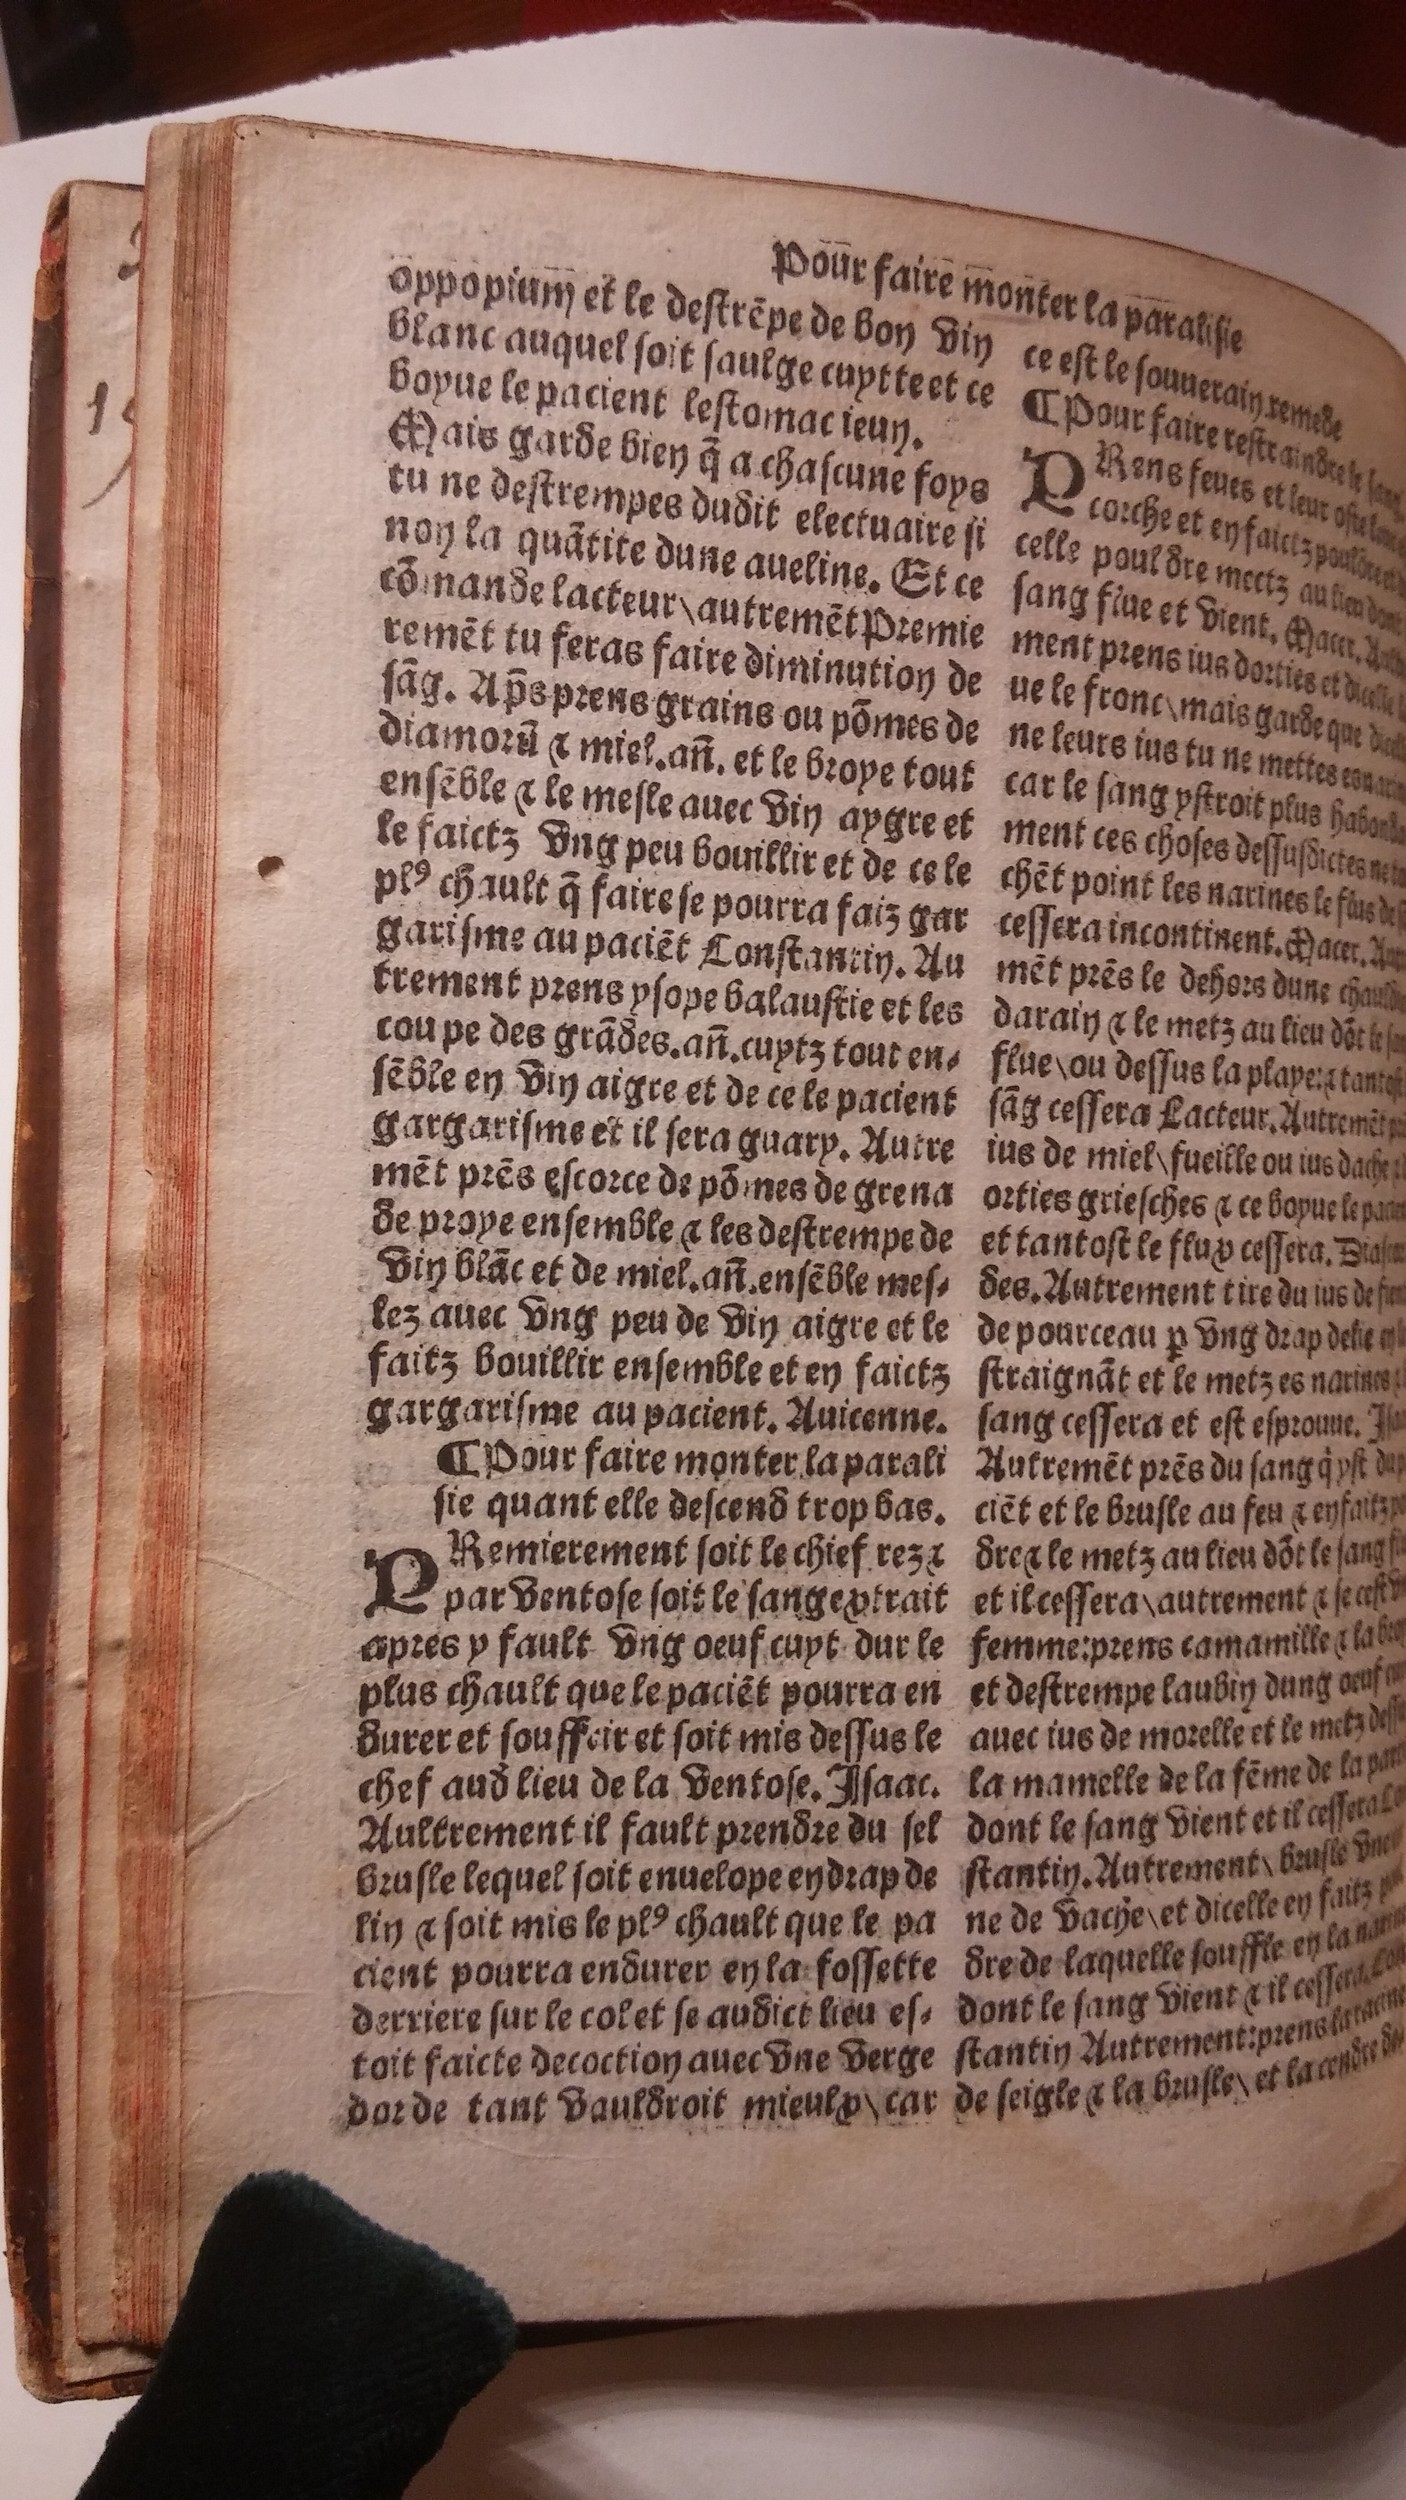 Pour faire monter la paralisie
oppopium et le destrēpe de bon vin
blanc auquel soit saulge cuytte et ce
boyue le pacient lestomac ieun.
Mais garde bien q̄ a chascune foys
tu ne destrempes dudit electuaire si
non la quātite dune aueline. Et ce
cōmande lacteur\autremēt Premie
remēt tu feras faire diminution de
sāg. Ap̄s prens grains ou pōmes de
diamorū ⁊ miel.an̄. et le broye tout
ensēble ⁊ le mesle auec vin aygre et
le faictz vng peu bouillir et de ce le
plꝰ chault q̄ faire se pourra faiz gar
garisme au paciēt Constantin. Au
trement prens ysope balaustie et les
coupe des grādes.an̄.cuytz tout en⸗
sēble en vin aigre et de ce le pacient
gargarisme et il sera guary. Autre
mēt prēs escorce de pōmes de grena
de proye ensemble ⁊ les destrempe de
vin blāc et de miel.an̄.ensēble mes⸗
lez auec vng peu de vin aigre et le
faitz bouillir ensemble et en faictz
gargarisme au pacient. Auicenne.
¶Pour faire monter la parali
sie quant elle descend trop bas.
PRemierement soit le chief rez ⁊
par ventose soit le sang extrait
apres y fault vng oeuf cuyt dur le
plus chault que le paciēt pourra en
durer et souffrir et soit mis dessus le
chef aud lieu de la ventose. Isaac.
Aultrement il fault prendre du sel
brusle lequel soit enuelope en drap de
lin ⁊ soit mis le plꝰ chault que le pa
cient pourra endurer en la fossette
derriere sur le col et se audict lieu es⸗
toit faicte decoction auec vne verge
dor de tant vauldroit mieulx\car
ce est le souuerain remede
¶Pour faire restraindre le sang
PRens feues et leur oste les
corche et en faictz pouldre
celle pouldre mectz au lieu dont
sang flue et vient. Macer.
ment prens ius dorties et dicelle
ue le fronc\mais garde que
ne leurs ius tu ne mettes es
car le sang ystroit plus
ment ces choses dessusdictes ne
chēt point les narines le flus de
cessera incontinent.Macer.
mēt prēs le dehors dune
darain ⁊ le metz au lieu dōt le
flue\ou dessus la playe:⁊
sāg cessera Lacteur.Autremēt
ius de miel\fueille ou ius dache
orties griesches ⁊ ce boyue le
et tantost le flux cessera.
des.Autrement tire du ius de
de pourceau ꝑ vng drap delie
straignāt et le metz es narines
sang cessera et est esproue.
Autremēt prēs du sang q̇ yst du
ciēt et le brusle au feu ⁊ en faitz
dre⁊ le metz au lieu dōt le sang
et il cessera\autrement ⁊ se cest
femme:prens camamille ⁊ la
et destrempe laubin dung oeuf
auec ius de morelle et le metz
la mamelle de la fēme de la
dont le sang vient et il cessera
stantin.Autrement\brusle
ne de vache\et dicelle en faitz
dre de laquelle souffle en la
dont le sang vient ⁊ il cessera.
stantin Autrement:prens la racine
de seigle ⁊ la brusle\et la cendre